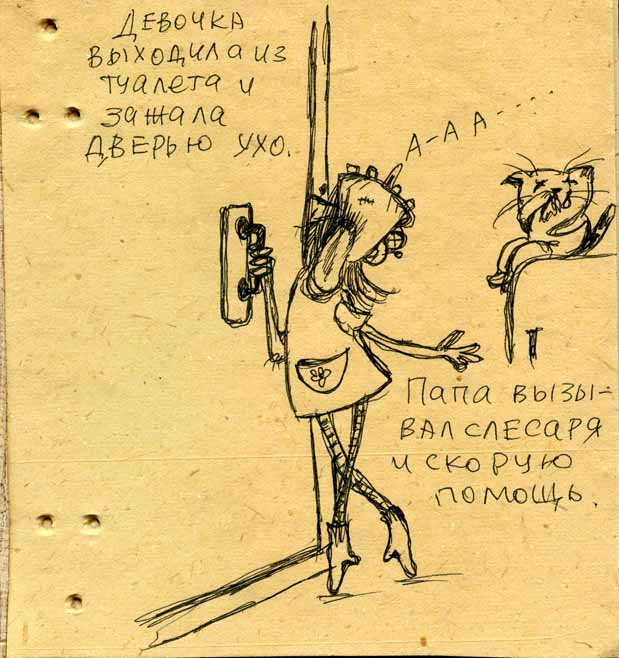 ДЕВОЧКА
ВЫХОДИЛА ИЗ
ТУАЛЕТА И
ЗАЖАЛА
ДВЕРЬЮ УХО.
А-АА----...
ПАПА ВЫЗЫ-
ВАЛ СЛЕСАРЯ
И СКОРУЮ
ПОМОЩЬ.